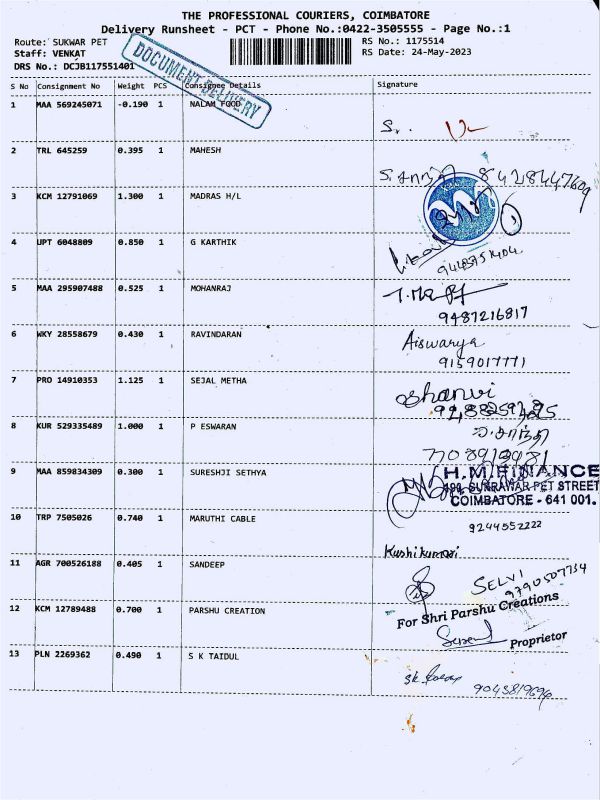 THE PROFESSIONAL COURIERS, COIMBATORE
Delivery Runsheet - PCT - Phone No.:0422-3505555 - Page No.:1
Route: SUKWAR PET RS No.: 1175514
Staff: VENKAT RS Date: 24-May-2023
DRS No.: DCJB117551401
DOCUMENT DELIVERY
S No Consignment No Weight PCS Consignee Details Signature
1 MAA 569245071 -0.190 1 NALAM FOOD
2 TRL 645259 0.395 1 MAHESH
8428447609
3 KCM 12791069 1.300 1 MADRAS H/L
4 UPT 6048809 0.850 1 G KARTHIK
9443751404
5 MAA 295907488 0.525 1 MOHANRAJ
9487216817
6 WKY 28558679 0.430 1 RAVINDARAN Aiswarya
9159017771
7 PRO 14910353 1.125 1 SEJAL METHA
8 KUR 529335489 1.000 1 P ESWARAN
9 MAA 859834309 0.300 1 SURESHJI SETHYA H.M.FINANCE
SUKRAWAR PET STREET
COIMBATORE - 641 001.
10 TRP 7505026 0.740 1 MARUTHI CABLE 9244552222
Kushikumari
11 AGR 700526188 0.405 1 SANDEEP SELVI
9790507734
12 KCM 12789488 0.700 1 PARSHU CREATION For Shri Parshu Creations
Proprietor
13 PLN 2269362 0.490 1 S K TAIDUL
9043819696